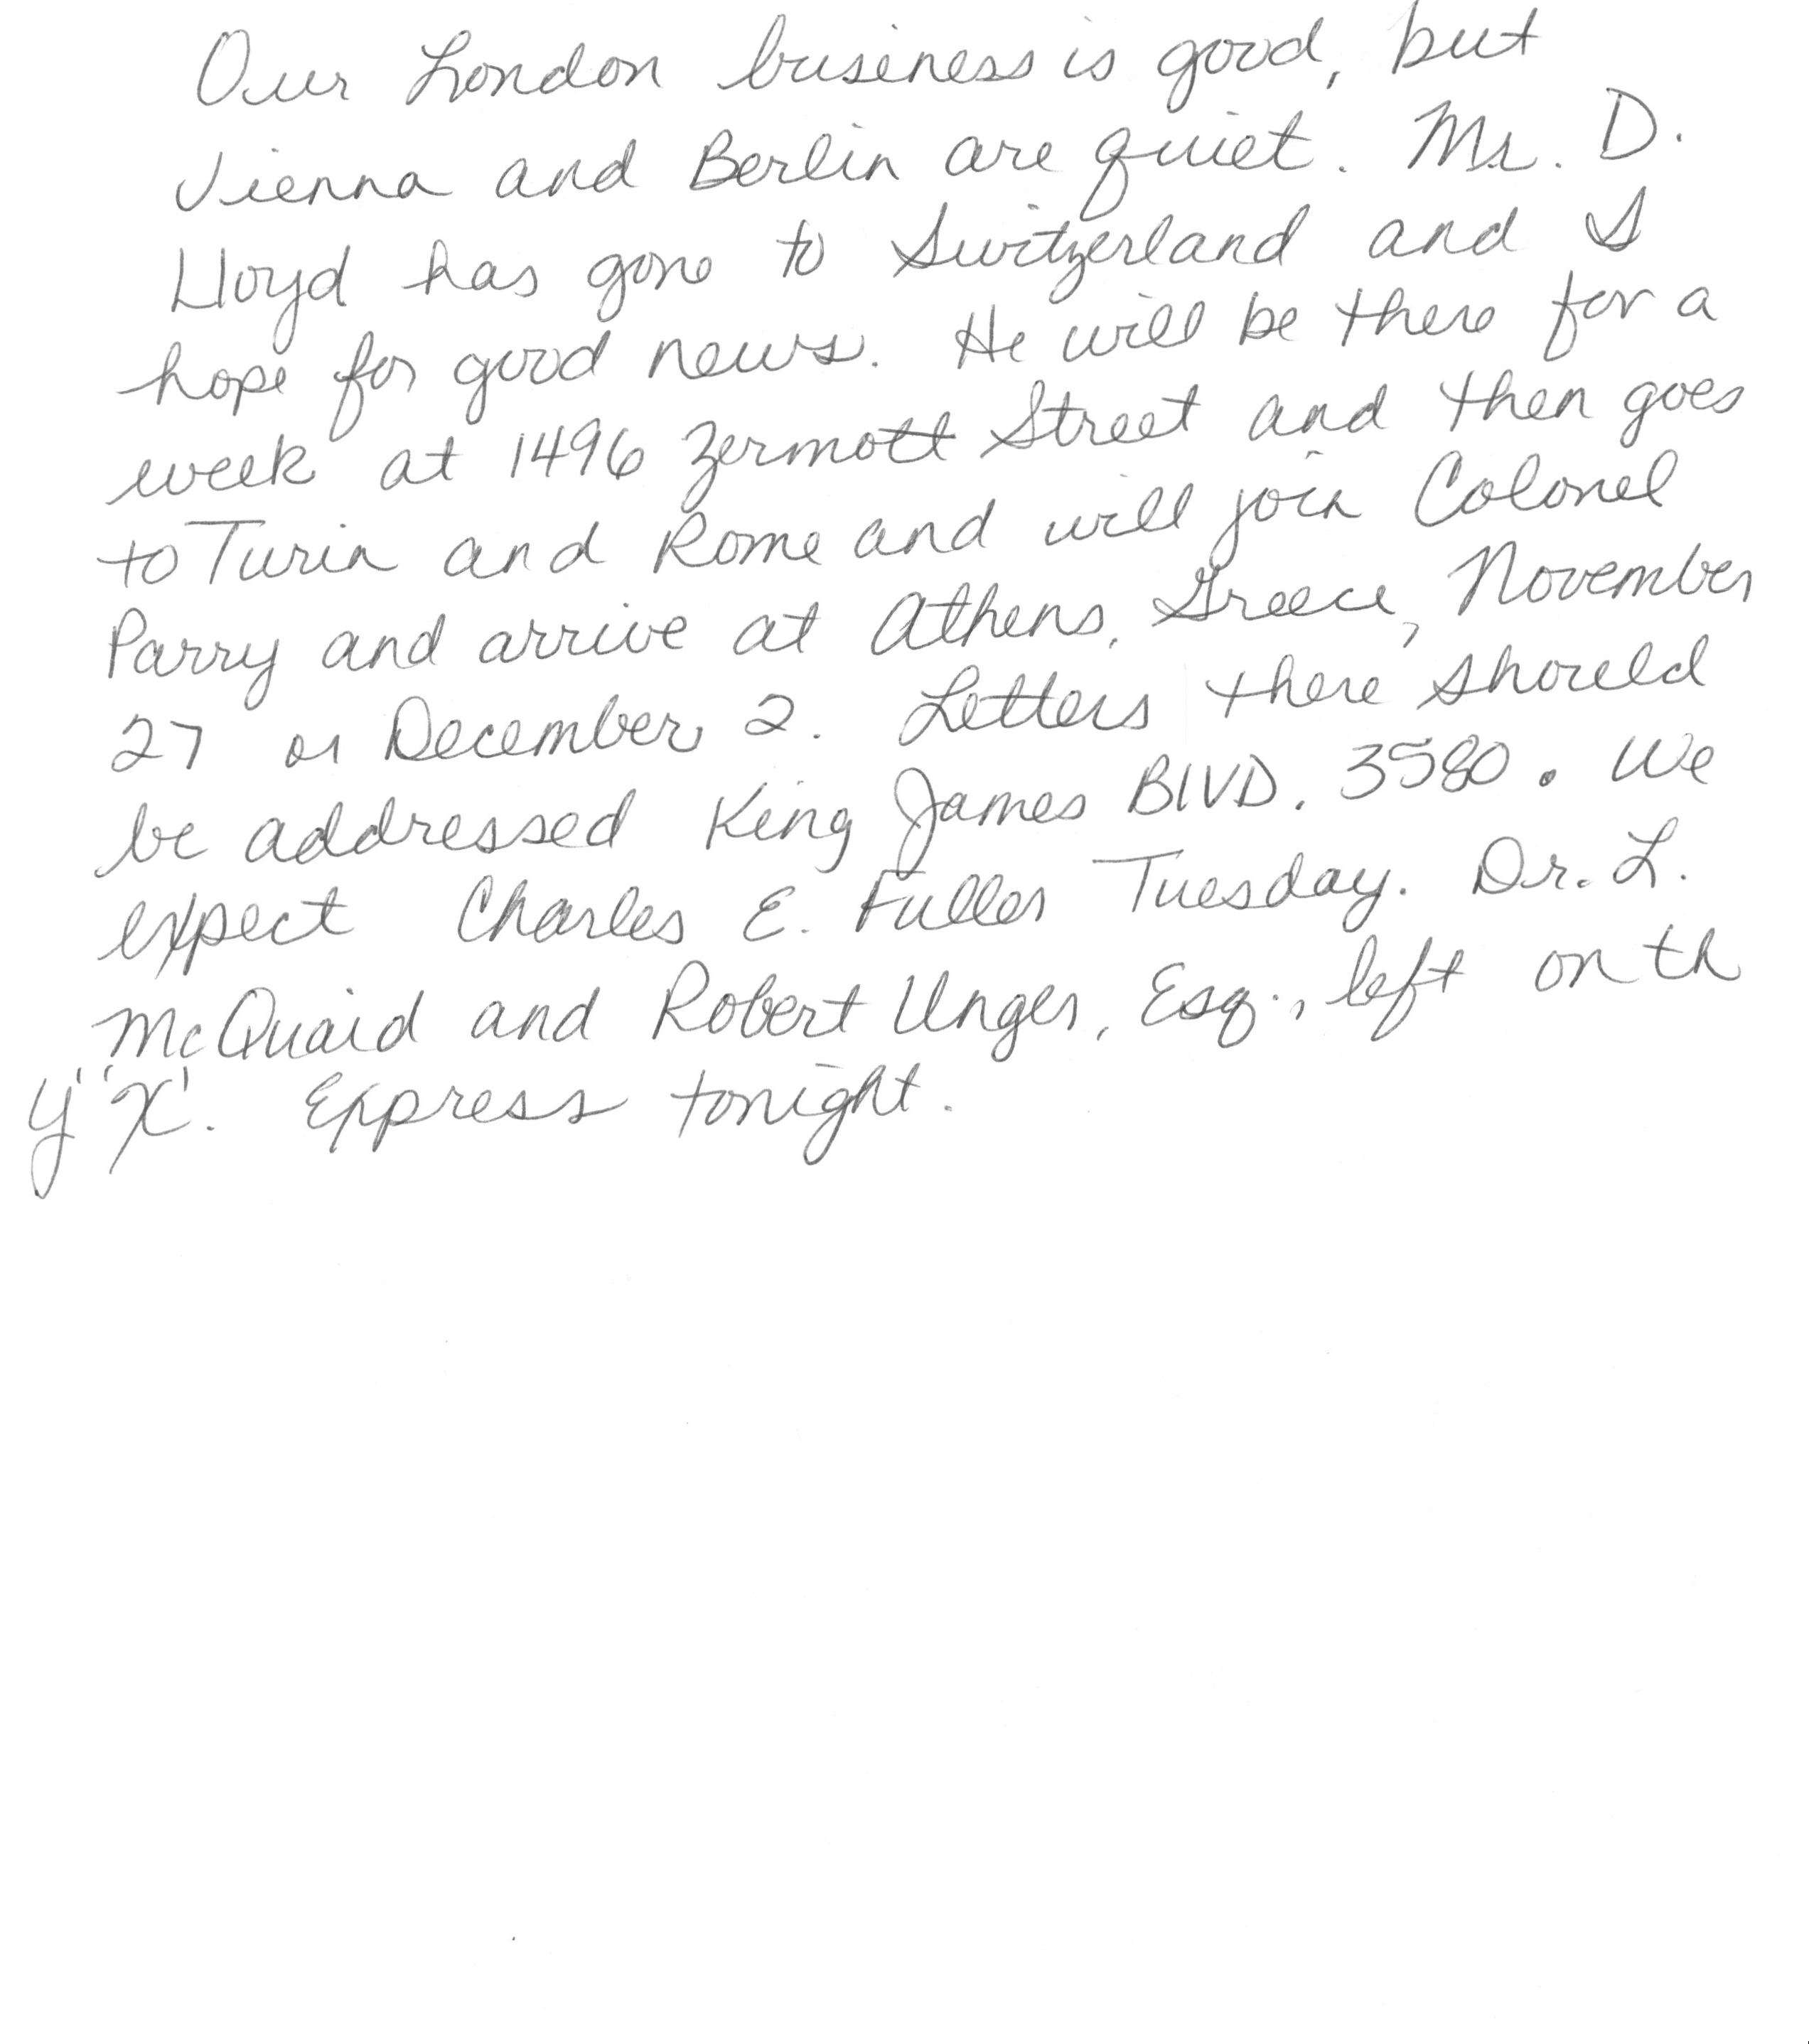 Our London business is good, but
Vienna and Berlin are quiet. Mr. D.
Lloyd has gone to Switzerland and I
hope for good news. He will be there for a
week at 1496 Zermott Street and then goes
to Turin and Rome and will join Colonel
Parry and arrive at Athens, Greece, November
27 or December 2. Letters there should
be addressed King James BLVD. 3580. We
expect Charles E. Fuller Tuesday. Dr. L.
McQuaid and Robert Unger, Esq., left on th
'Y' 'X'. Express tonight.